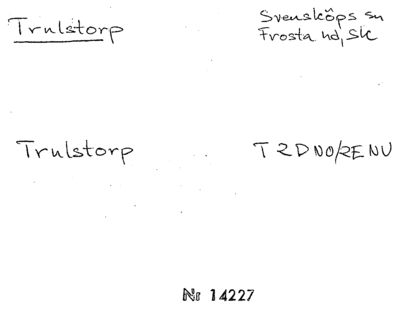 Trulstorp
Svensköps sn
Frosta hd, Sk
Trulstorp
T 2D NO/2E NV
Nr 14227